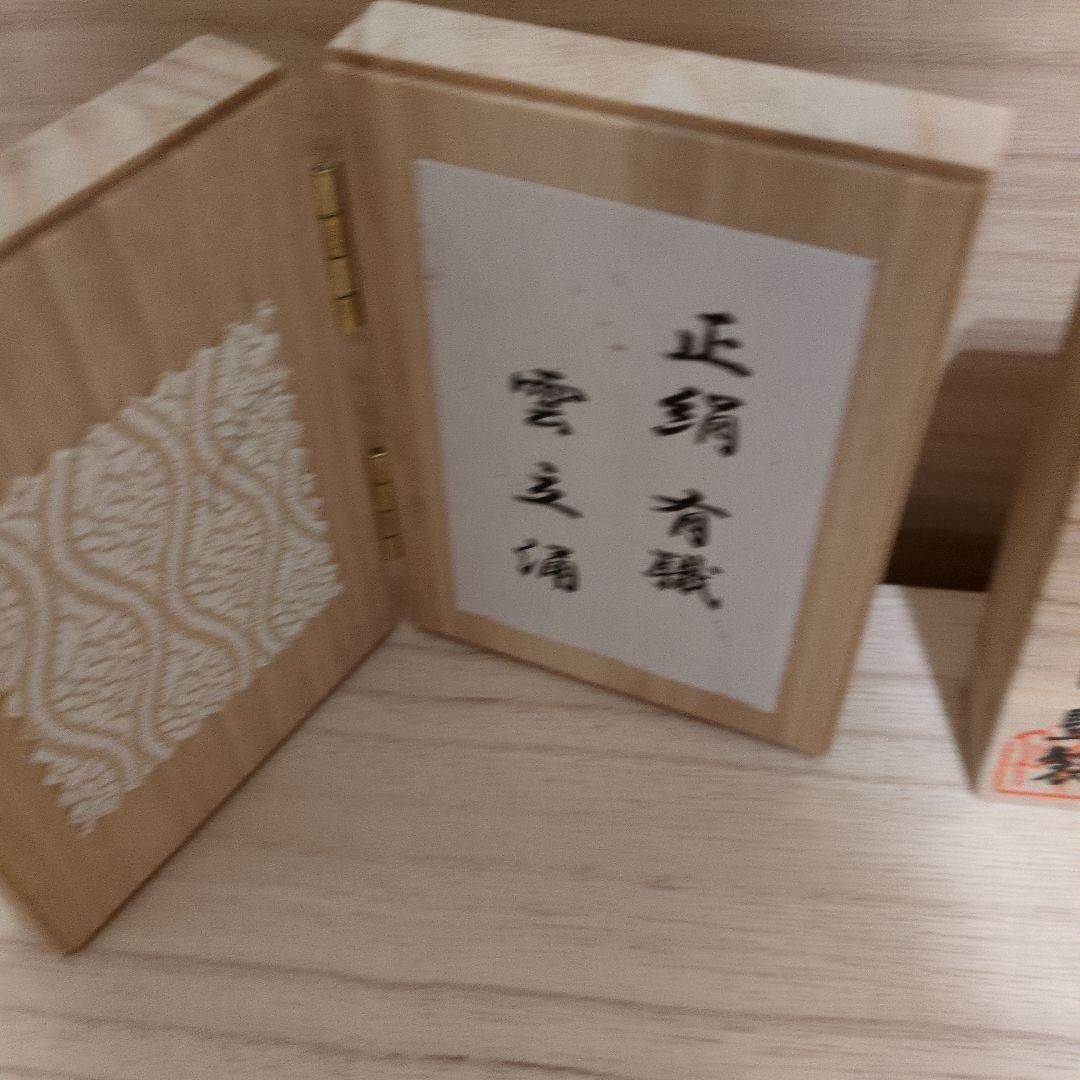 正絹 有職
雲立涌